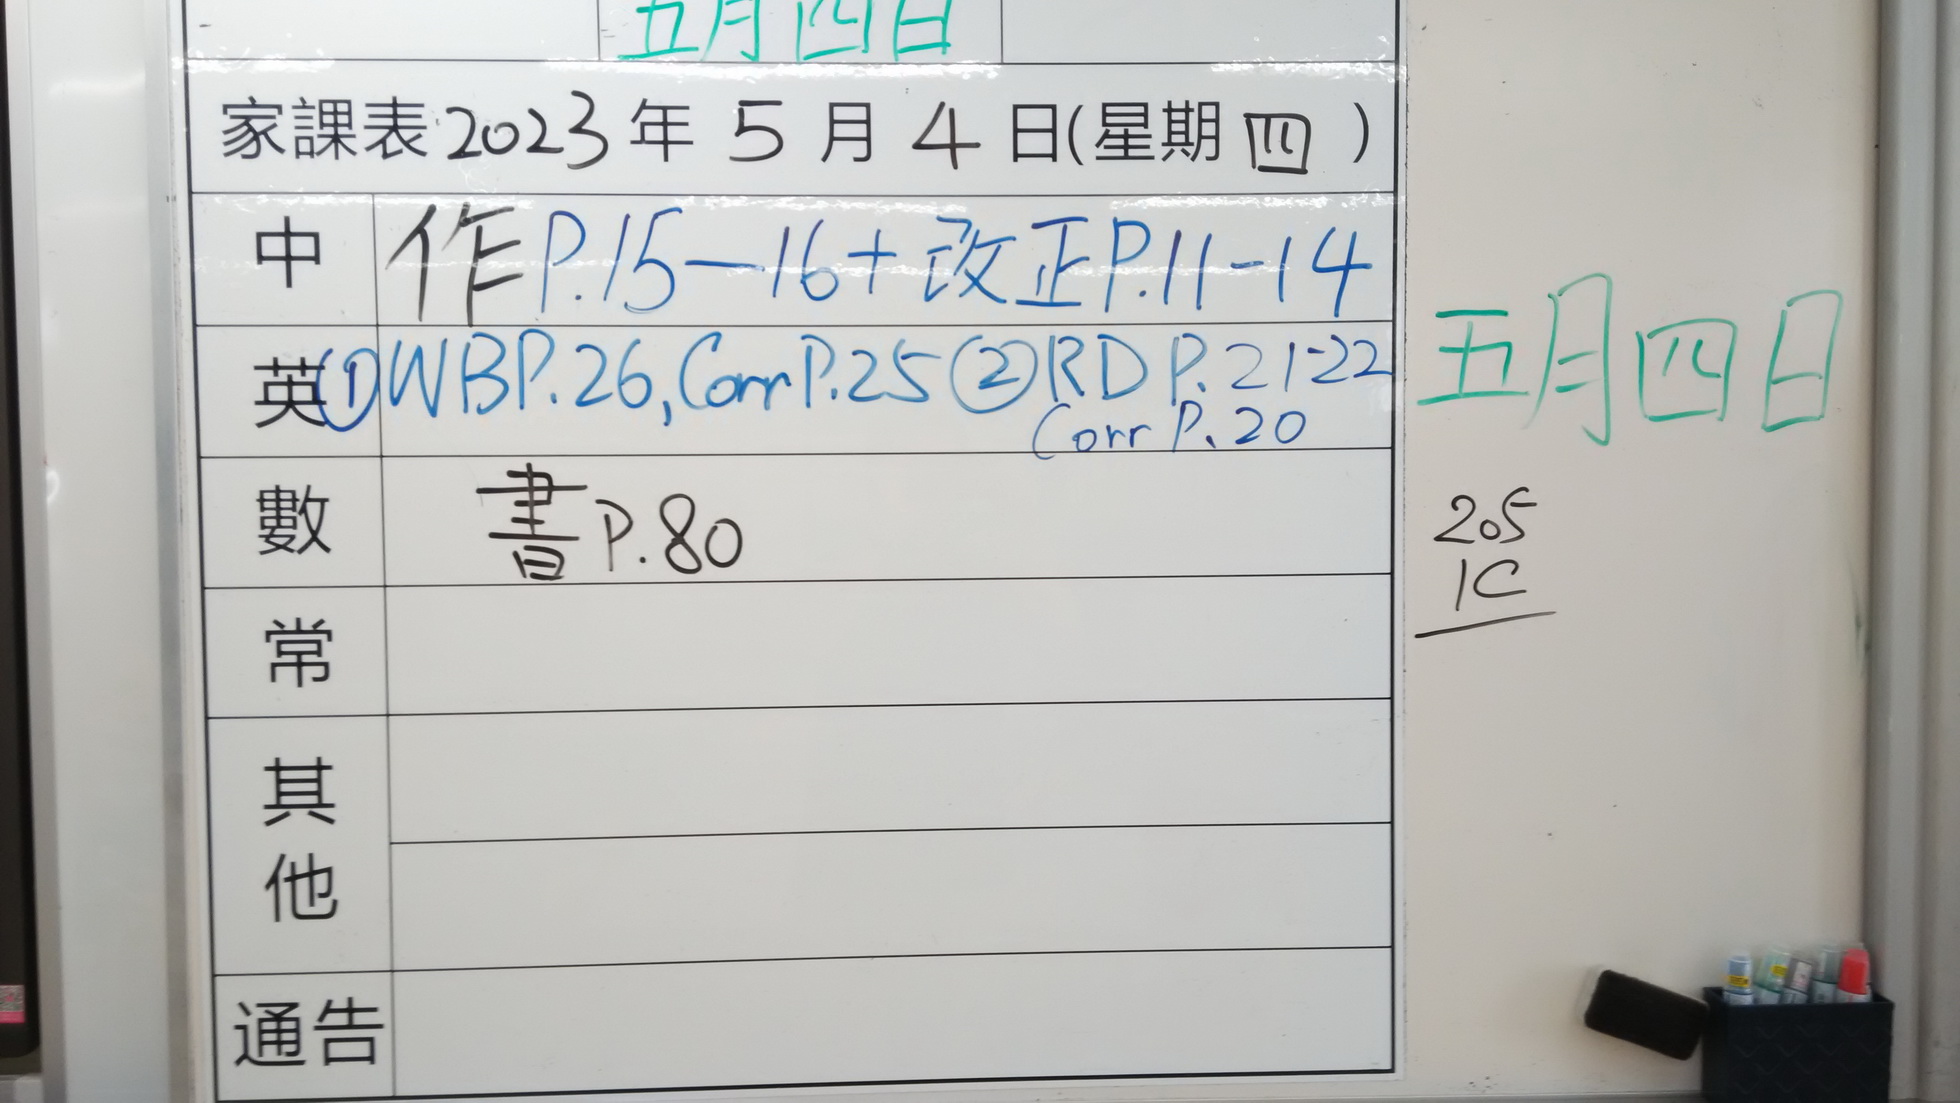 五月四日
家課表2023年 5 月 4 日(星期 四 )
中 作P.15—16+改正P.11-14
英 ①WBP.26,Corr P.25 ②RD P.21-22
Corr P.20
數 書P.80
常
其
他
通告
五月四日
205
1C